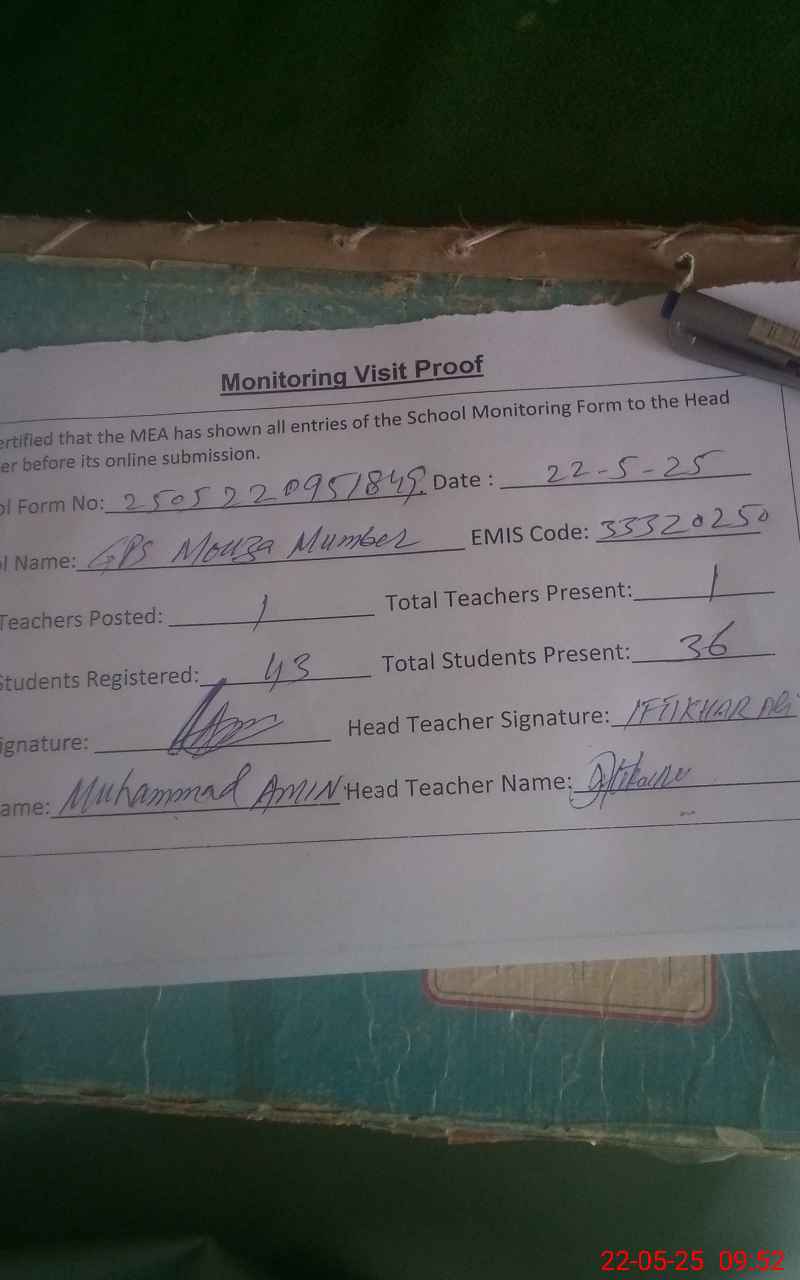 Monitoring Visit Proof
ertified that the MEA has shown all entries of the School Monitoring Form to the Head
er before its online submission.
ol Form No: 2505220951849 Date : 22-5-25
ol Name: GPS Mouza Mumber EMIS Code: 33320250
Teachers Posted: 1 Total Teachers Present: 1
Students Registered: 43 Total Students Present: 36
ignature: Head Teacher Signature: IFTIKHAR ALI
ame: Muhammad AMIN Head Teacher Name:
22-05-25 09:52